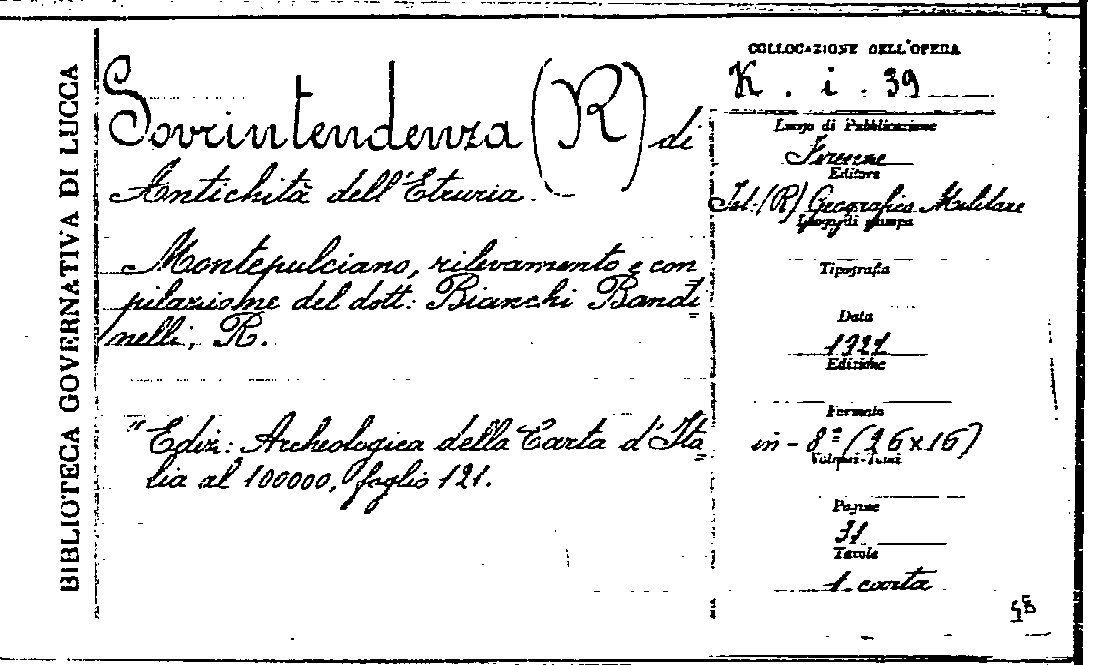 BIBLIOTECA GOVERNATIVA DI LUCCA
Sovrintendenza (R) di
Antichità dell'Etruria.
Montepulciano, rilevamento e com
pilazione del dott: Bianchi Bandi=
nelli, R.
"Ediz: Archeologica della Carta d'Ita=
lia al 100000, foglio 121.
COLLOCAZIONE DELL'OPERA
K . i . 39
Luogo di Pubblicazione
Firenze
Editore
Ist: (R) Geografico Militare
Luogo di stampa
Tipografia
Data
1927
Edizione
Formato
in - 8º (26x16)
Volumi-Tomi
Pagine
31
Tavole
1. carta